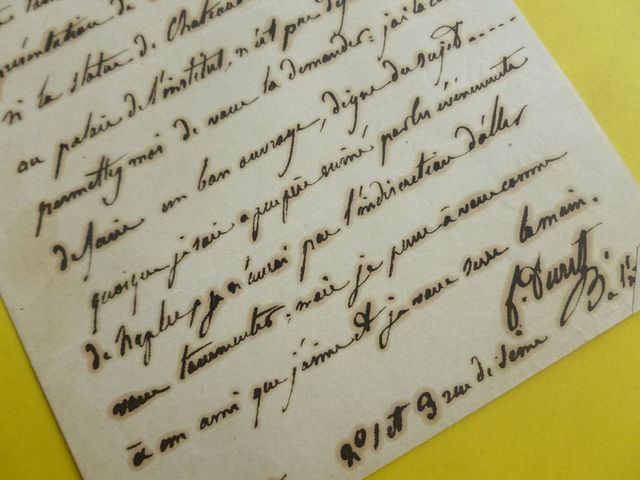 présentation de
si la statue de Chateaub
au palais de l'institut, n'est pas dign
permettez moi de vous la demander: j'ai la co
de faire un bon ouvrage, digne du sujet.....
quoique je sois à peu près ruiné par les événements
de Naples, je n'aurai pas l'indiscretion d'aller
vous tourmenter: mais je pense à vous comme
à un ami que j'aime et je vous serre la main.
f. Duret
20 1 et 3 rue de Seine